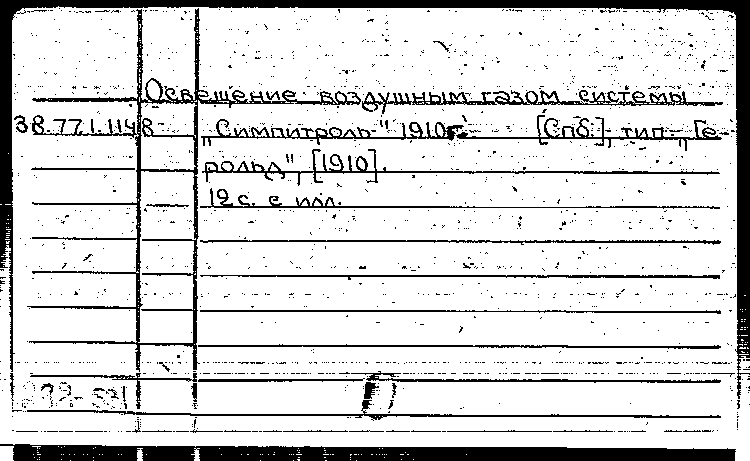 Освещение воздушным газом системы
38.77.1.1148 „Симпитроль" 1910г. [Спб.], тип. „Ге-
рольд", [1910].
12 с. с илл.